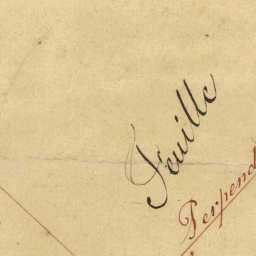 Feuille
Perpend